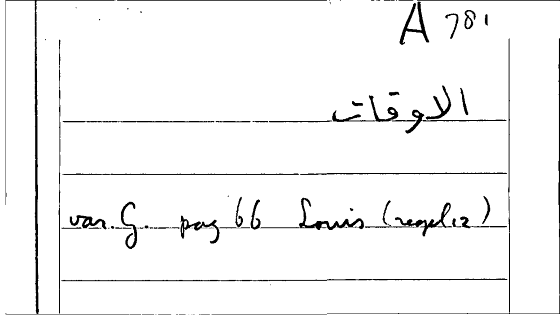 A 781
الاوقات
var. G. pag 66 Louis (regel12)